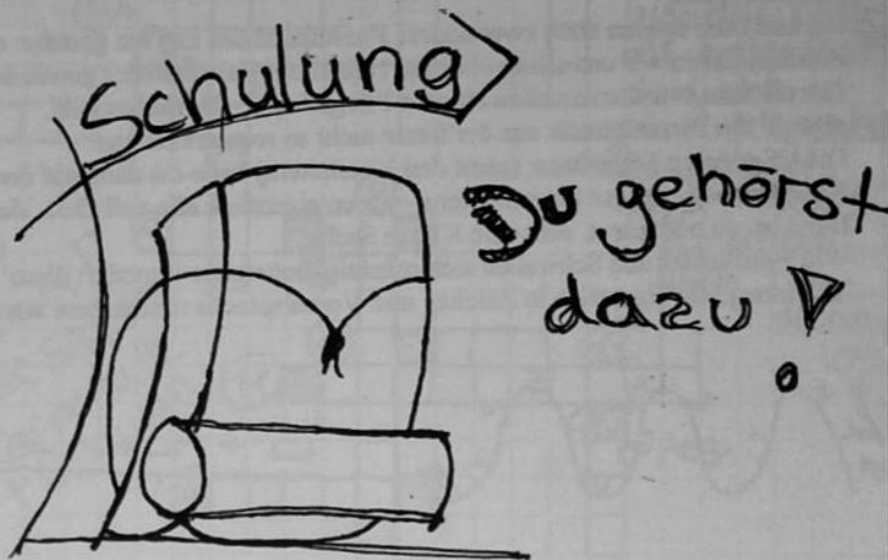 Schulung
Du gehörst
dazu!